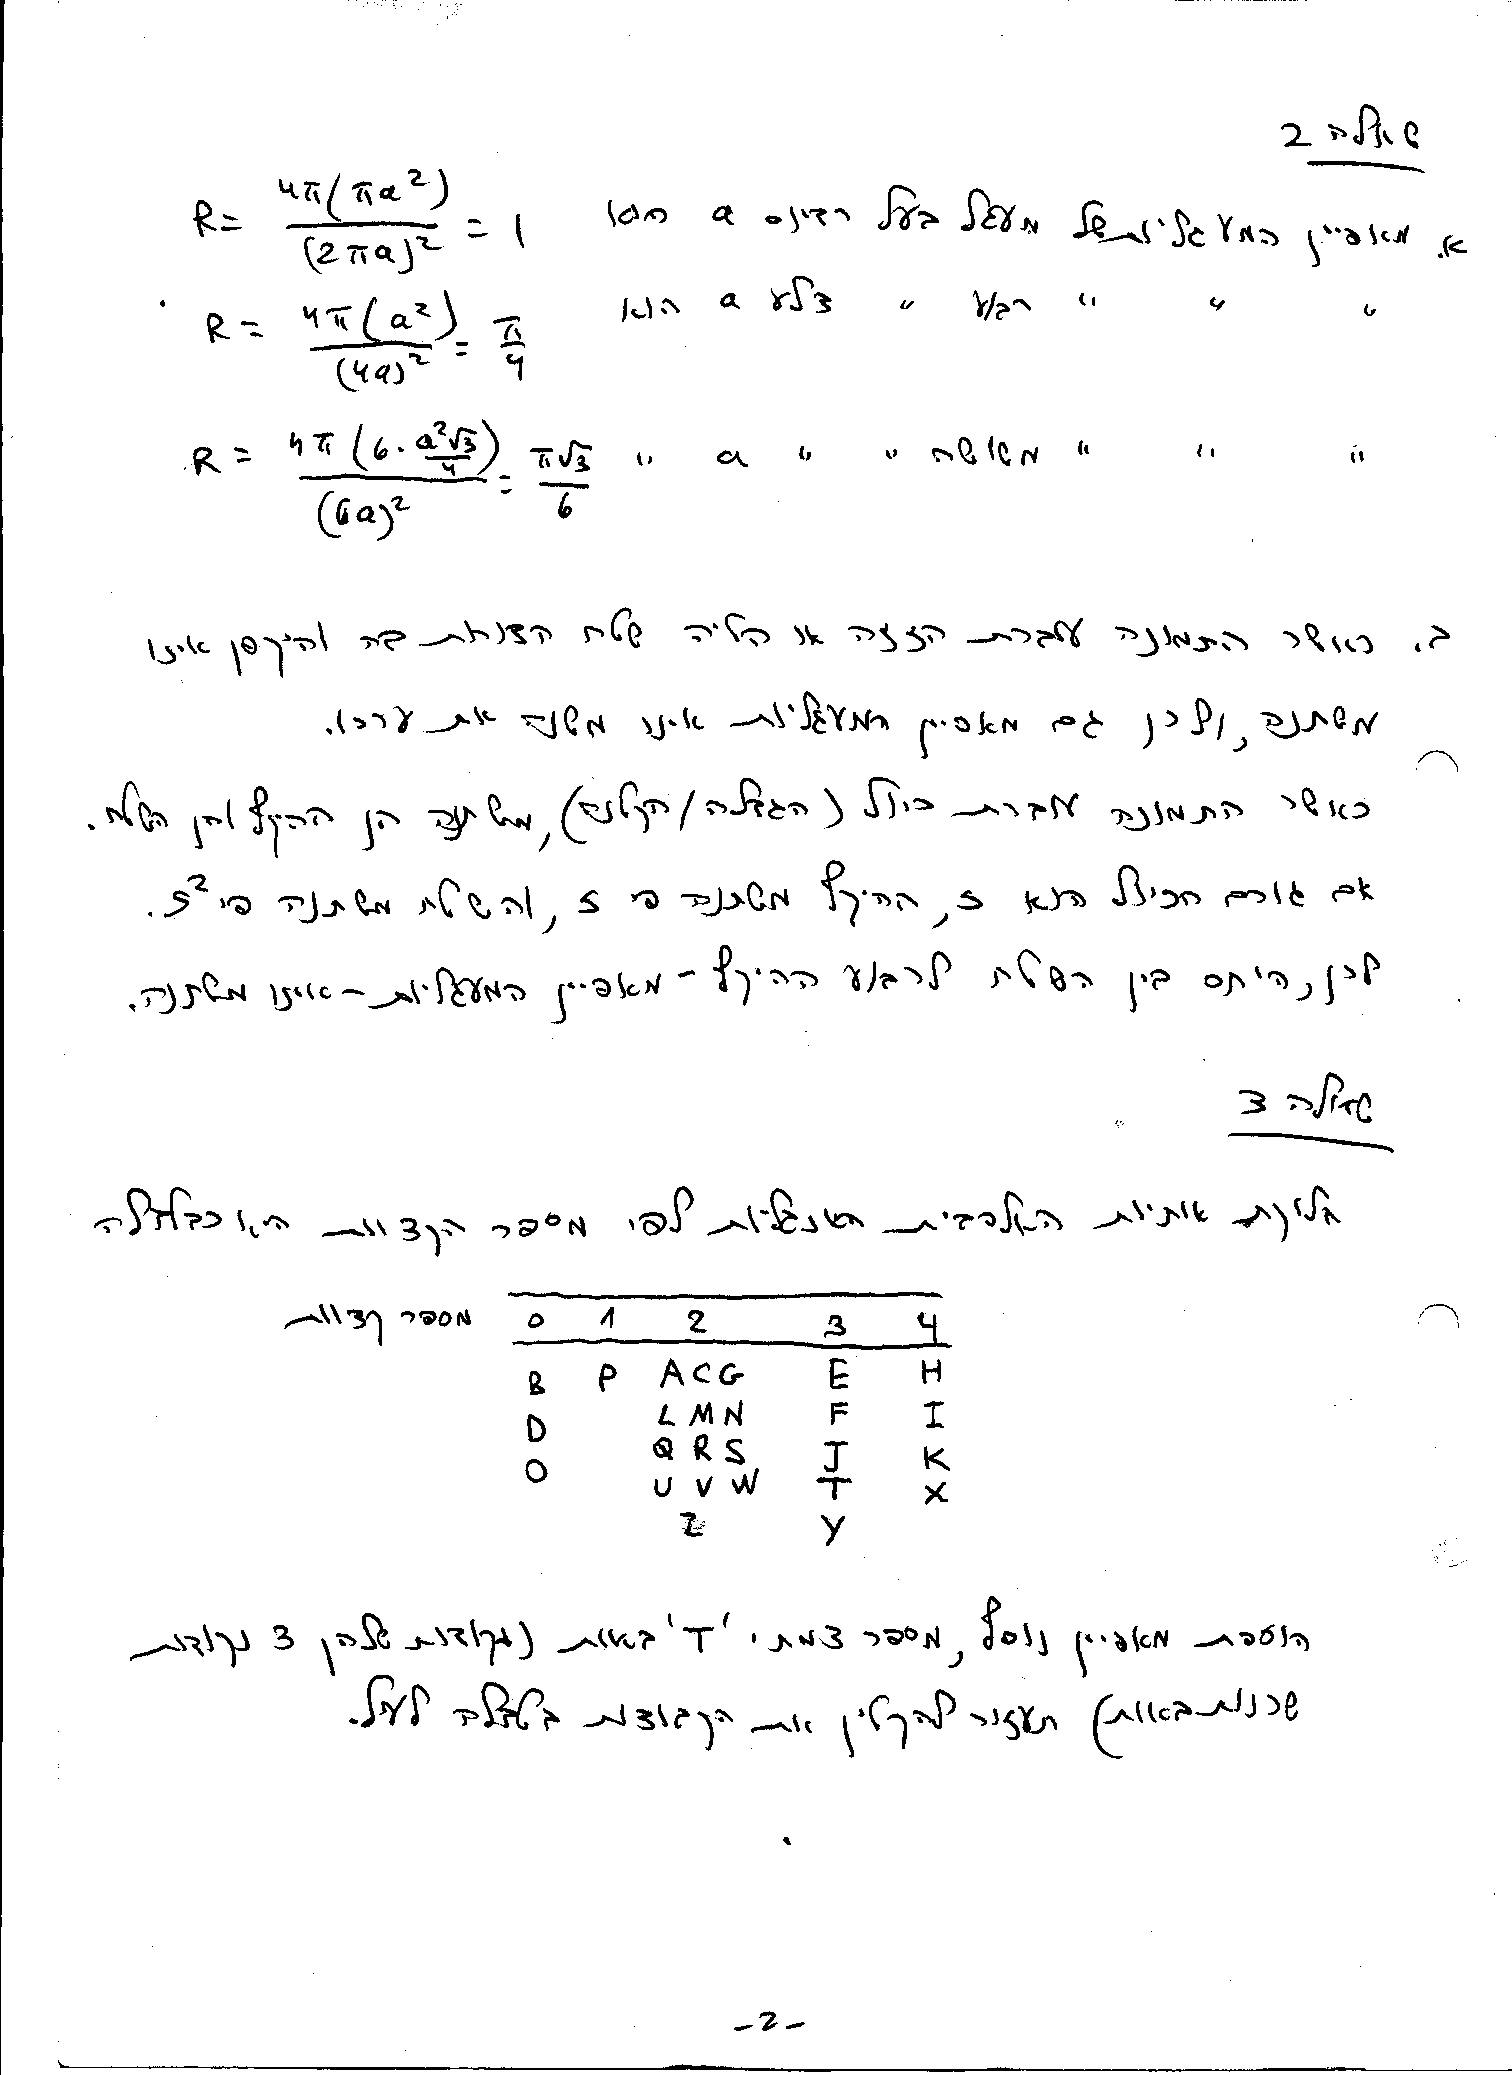 שאלה 2
א. מאפיין המעגליות של מעגל בעל רדיוס a הוא R = 4π(πa²) / (2πa)² = 1
" " " רבוע " צלע a הוא R = 4π(a²) / (4a)² = π/4
" " " משושה " " a " R = 4π(6·a²√3/4) / (6a)² = π√3/6
ב. כאשר התמונה עוברת הזזה או הטיה שטח הצורות בה והיקפן אינו
משתנה, ולכן גם מאפיין המעגליות אינו משנה את ערכו.
כאשר התמונה עוברת כיול (הגדלה/הקטנה), משתנה הן ההיקף והן השטח.
אם גורם הכיול הוא s, ההיקף משתנה פי s, והשטח משתנה פי s².
לכן, היחס בין השטח לרבוע ההיקף - מאפיין המעגליות - אינו משתנה.
שאלה 3
חלוקת אותיות האלפבית האנגליות לפי מספר הקצוות היא כבטבלה
מספר קצוות 0 1 2 3 4
B P A C G E H
D L M N F I
O Q R S J K
U V W T X
Z Y
הוספת מאפיין נוסף, מספר צמתי 'T' באות (נקודות שלהן 3 נקודות
שכנות באות) תעזור להקטין את הקבוצות בטבלה לעיל.
-2-